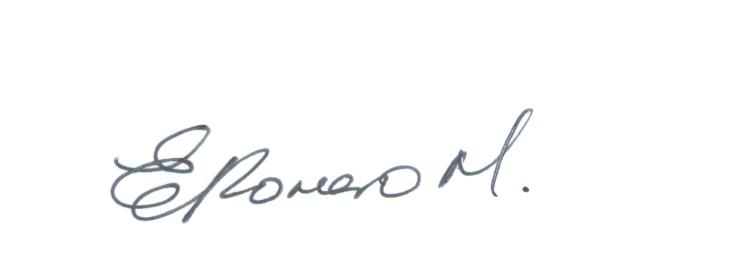 ERomero M.